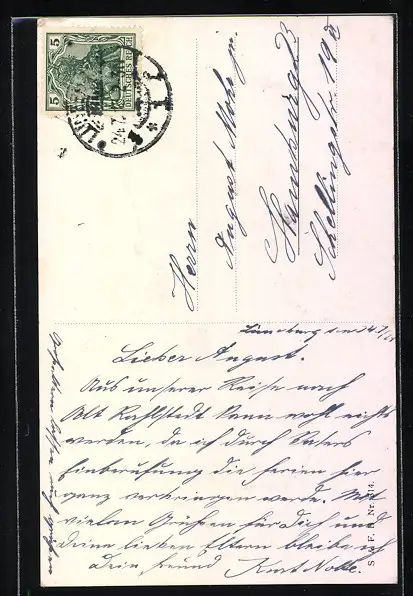 5 5
DEUTSCHES REICH
Herrn
August Mohr jr.
Hamburg 23
Schellingstr. 19
Lüneburg, den 24/7
Lieber August.
Aus unserer Reise nach
Alt Rahlstedt kann wohl nichts
werden, da ich durch Vaters
Einberufung die Ferien hier
ganz verbringen werde. Mit
vielen Grüßen für Dich und
Deine lieben Eltern bleibe ich
Dein Freund Kurt Nolte.
lassen auch grüßen